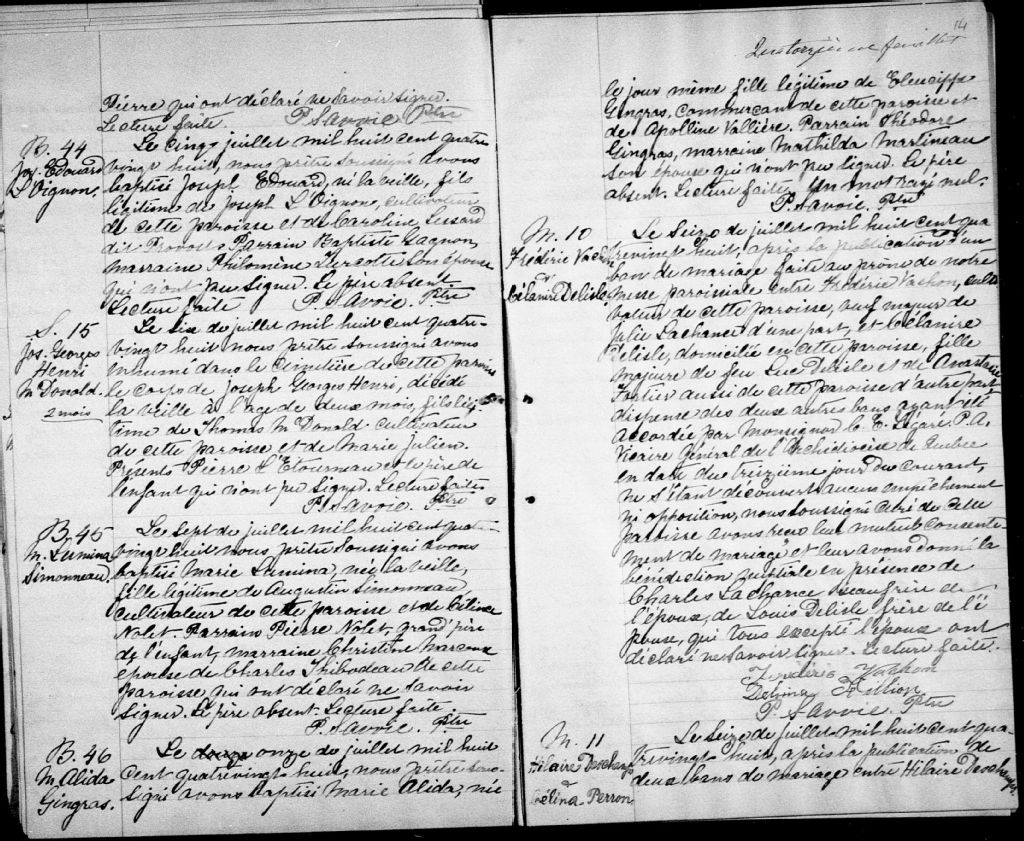 Pierre qui ont déclaré ne savoir signer.
Lecture faite. P. Savoie. Ptre
B. 44
Jos. Edouard
L'Oignon.
Le cinq juillet mil huit cent quatre
vingt huit, nous prêtre soussigné avons
baptisé Joseph Edouard, né la veille, fils
légitime de Joseph L'Oignon, cultivateur
de cette paroisse et de Caroline Lessard
dit Parrain Baptiste Gagnon,
marraine Philomène Turcotte son épouse
qui n'ont pu signer. Le père absent.
Lecture faite P. Savoie. Ptre
S. 15
Jos. Georges
Henri
McDonald.
2 mois
Le six de juillet mil huit cent quatre-
vingt huit nous prêtre soussigné avons
inhumé dans le cimetière de cette paroisse
le corps de Joseph Georges Henri, décédé
la veille à l'age de deux mois, fils légi-
time de Thomas McDonald cultivateur
de cette paroisse et de Marie Julien.
Présents Pierre L'Etourneau et le père de
l'enfant qui n'ont pu signer. Lecture faite
P. Savoie. Ptre
B. 45
M. Lumina
Simonneau.
Le sept de juillet mil huit cent quatre-
vingt huit nous prêtre soussigné avons
baptisé Marie Lumina, née la veille,
fille légitime de Augustin Simonneau
cultivateur de cette paroisse et de Célina
Nolet. Parrain Pierre Nolet, grand'père
de l'enfant, marraine Christine Marcoux
épouse de Charles Thibodeau de cette
paroisse qui ont déclaré ne savoir
signer. Le père absent. Lecture faite.
P. Savoie. Ptre
B. 46
M. Alida
Gingras.
Le onze de juillet mil huit
cent quatrevingt huit, nous prêtre sous-
signé avons baptisé Marie Alida, née
14
Quatorzième feuillet
le jour même fille légitime de Eleucippe
Gingras, commerçant de cette paroisse et
de Apolline Vallière. Parrain Théodore
Gingras, marraine Mathilda Martineau
son épouse qui n'ont pu signer. Le père
absent. Lecture faite. Un mot rayé nul.
P. Savoie. Ptre
M. 10
Frédéric Vachon
&
Célanire Delisle
Le Seize de juillet mil huit cent qua
trevingt huit, après la publication d'un
ban de mariage faite au prône de notre
messe paroissiale entre Frédéric Vachon, culti
vateur de cette paroisse, veuf majeur de
Julie Lachance d'une part, et Célanire
Delisle, domiciliée en cette paroisse, fille
majeure de feu Luc Delisle et de Anastasie
Fortier aussi de cette paroisse d'autre part,
dispense des deux autres bans ayant été
accordée par Monsignor C. E. Légaré P. A.
Vicaire Général de l'Archidiocèse de Québec
en date du treizième jour du courant,
ne s'étant découvert aucun empêchement
ni opposition, nous soussigné curé de cette
paroisse avons reçu leur mutuel consente-
ment de mariage et leur avons donné la
bénédiction nuptiale en présence de
Charles Lachance beaufrère de
l'époux, de Louis Delisle frère de l'é
pouse, qui tous excepté l'époux ont
déclaré ne savoir signer. Lecture faite.
Frédéric Vachon
P. Savoie. Ptre
M. 11
Hilaire Deschamps
&
Célina Perron
Le Seize de juillet mil huit cent qua-
trevingt huit, après la publication de
deux bans de mariage entre Hilaire Deschamps,